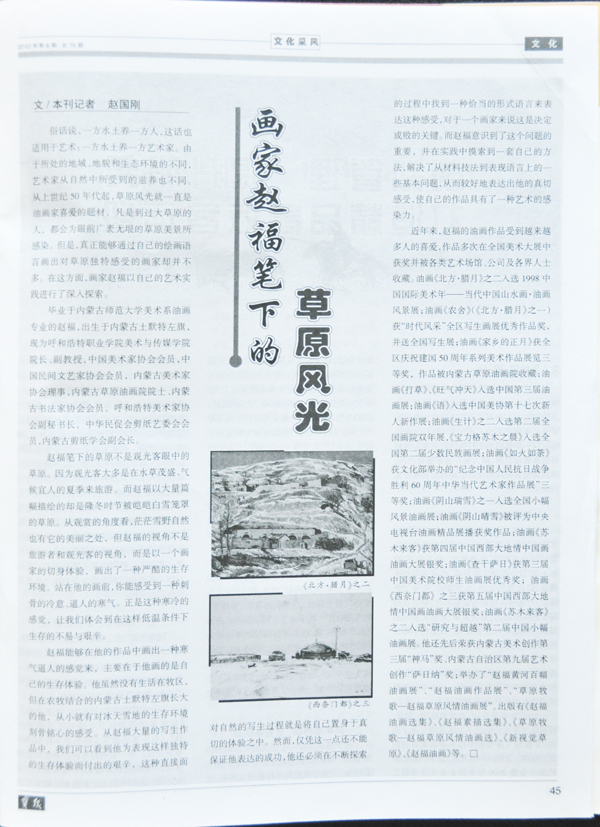 文化采风
文 化
文/本刊记者 赵国刚
画家赵福笔下的
草原风光
俗话说,一方水土养一方人,这话也
适用于艺术:一方水土养一方艺术家。由
于所处的地域、地貌和生态环境的不同,
艺术家从自然中所受到的滋养也不同。
从上世纪 50 年代起,草原风光就一直是
油画家喜爱的题材。凡是到过大草原的
人,都会为眼前广袤无垠的草原美景所
感染。但是,真正能够通过自己的绘画语
言画出对草原独特感受的画家却并不
多。在这方面,画家赵福以自己的艺术实
践进行了深入探索。
毕业于内蒙古师范大学美术系油画
专业的赵福,出生于内蒙古土默特左旗,
现为呼和浩特职业学院美术与传媒学院
院长、副教授,中国美术家协会会员,中
国民间文艺家协会会员、内蒙古美术家
协会理事,内蒙古草原油画院院士,内蒙
古书法家协会会员、呼和浩特美术家协
会副秘书长、中华民促会剪纸艺委会会
员,内蒙古剪纸学会副会长。
赵福笔下的草原不是观光客眼中的
草原。因为观光客大多是在水草茂盛、气
候宜人的夏季来旅游。而赵福以大量篇
幅描绘的却是隆冬时节被皑皑白雪笼罩
的草原。从观赏的角度看,茫茫雪野自然
也有它的美丽之处。但赵福的视角不是
旅游者和观光客的视角,而是以一个画
家的切身体验,画出了一种严酷的生存
环境。站在他的画前,你能感受到一种刺
骨的冷意、逼人的寒气。正是这种寒冷的
感觉,让我们体会到在这样低温条件下
生存的不易与艰辛。
赵福能够在他的作品中画出一种寒
气逼人的感觉来,主要在于他画的是自
己的生存体验。他虽然没有生活在牧区,
但在农牧结合的内蒙古土默特左旗长大
的他,从小就有对冰天雪地的生存环境
刻骨铭心的感受。从赵福大量的写生作
品中,我们可以看到他为表现这样独特
的生存体验而付出的艰辛。这种直接面
《北方·腊月》之二
《西奈门都》之三
对自然的写生过程就是将自己置身于真
切的体验之中。然而,仅凭这一点还不能
保证他表达的成功,他还必须在不断探索
的过程中找到一种恰当的形式语言来表
达这种感受,对于一个画家来说这是决定
成败的关键。而赵福意识到了这个问题的
重要,并在实践中摸索到一套自己的方
法,解决了从材料技法到表现语言上的一
些基本问题,从而较好地表达出他的真切
感受,使自己的作品具有了一种艺术的感
染力。
近年来,赵福的油画作品受到越来越
多人的喜爱,作品多次在全国美术大展中
获奖并被各类艺术场馆、公司及各界人士
收藏。油画《北方·腊月》之二入选 1998 中
国国际美术年——当代中国山水画·油画
风景展;油画《农舍》(《北方·腊月》之一)
获"时代风采"全区写生画展优秀作品奖,
并选全国写生展;油画《家乡的正月》获全
区庆祝建国 50 周年系列美术作品展览三
等奖,作品被内蒙古草原油画院收藏;油
画《打草》、《旺气冲天》入选中国第三届油
画展;油画《语》入选中国美协第十七次新
人新作展;油画《生计》之二入选第二届全
国画院双年展,《宝力格苏木之晨》入选全
国第二届少数民族画展;油画《如火如荼》
获文化部举办的"纪念中国人民抗日战争
胜利 60 周年中华当代艺术家作品展"三
等奖;油画《阴山瑞雪》之一入选全国小幅
风景油画展;油画《阴山晴雪》被评为中央
电视台油画精品展播获奖作品;油画《苏
木来客》获第四届中国西部大地情中国画
油画大展银奖;油画《查干萨日》获第三届
中国美术院校师生油画展优秀奖;油画
《西奈门都》之三获第五届中国西部大地
情中国画油画大展银奖;油画《苏木来客》
之二入选"研究与超越"第二届中国小幅
油画展。他还先后荣获内蒙古美术创作第
三届"神马"奖、内蒙古自治区第九届艺术
创作"萨日纳"奖;举办了"赵福黄河百幅
油画展"、"赵福油画作品展"、"草原牧
歌—赵福草原风情油画展"。出版有《赵福
油画选集》、《赵福素描选集》、《草原牧
歌—赵福草原风情油画选》、《新视觉
草原》、《赵福油画》等。□
45